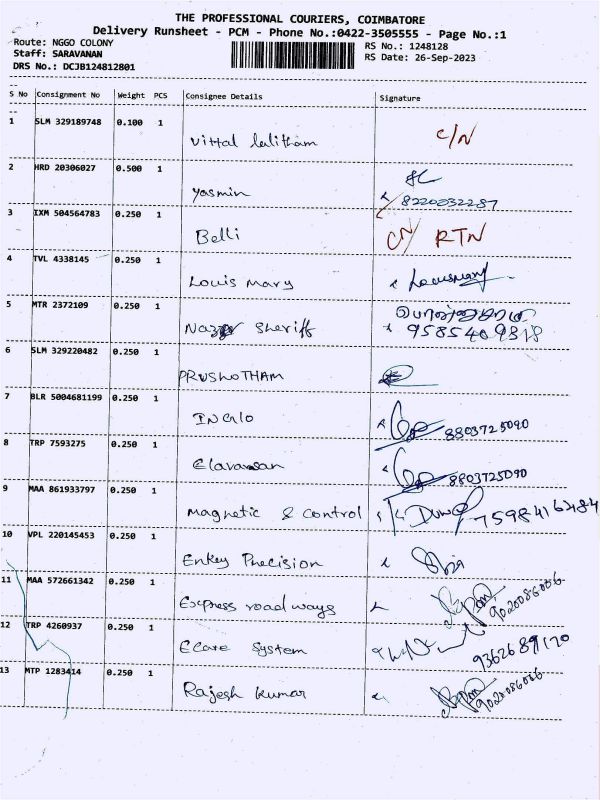 THE PROFESSIONAL COURIERS, COIMBATORE
Delivery Runsheet - PCM - Phone No.:0422-3505555 - Page No.:1
Route: NGGO COLONY RS No.: 1248128
Staff: SARAVANAN RS Date: 26-Sep-2023
DRS No.: DCJB124812801
S No Consignment No Weight PCS Consignee Details Signature
1 SLM 329189748 0.100 1 Vittal Lalitham C/N
2 HRD 20306027 0.500 1 Yasmin 8220032287
3 IXM 504564783 0.250 1 Belli CN RTN
4 TVL 4338145 0.250 1 Louis Mary Louismary
5 MTR 2372109 0.250 1 Sheriff 9585409318
6 SLM 329220482 0.250 1 PRUSHOTHAM
7 BLR 5004681199 0.250 1 8803725090
8 TRP 7593275 0.250 1 Elavarasan 8803725090
9 MAA 861933797 0.250 1 Magnetic & Control 7598416484
10 VPL 220145453 0.250 1 Enkey Precision
11 MAA 572661342 0.250 1 Express road ways 9020086006
12 TRP 4260937 0.250 1 Ecare System 9362689170
13 MTP 1283414 0.250 1 Rajesh Kumar 9020086006